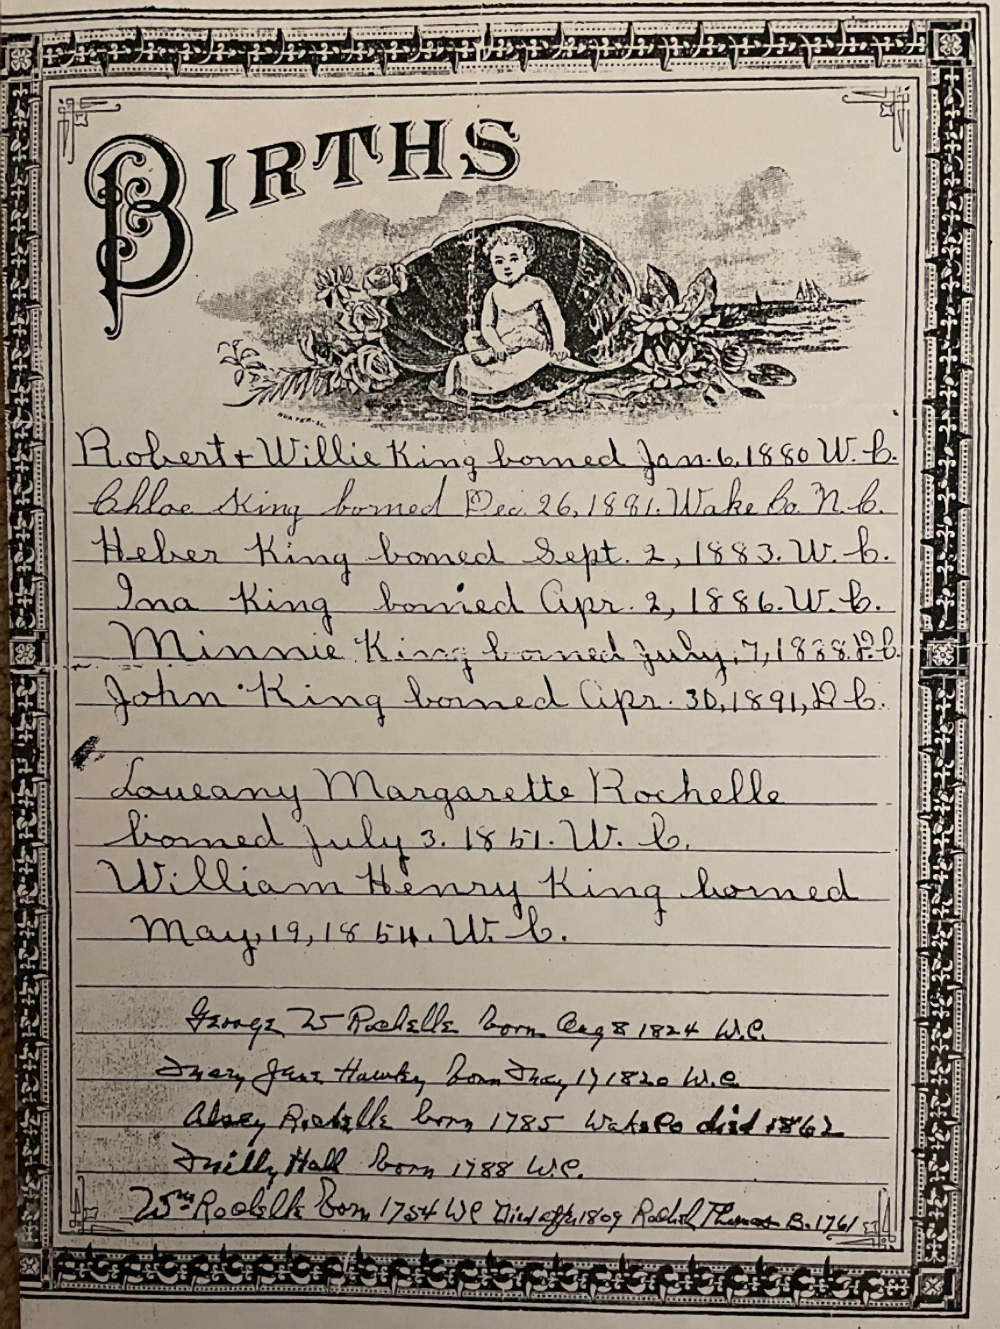 BIRTHS
Robert + Willie King borned Jan. 6, 1880 W. C.
Chloe King borned Dec. 26, 1881. Wake Co. N. C.
Heber King borned Sept. 2, 1883. W. C.
Ina King borned Apr. 2, 1886. W. C.
Minnie King borned July, 7, 1888. D. C.
John King borned Apr. 30, 1891, D C.
Loueany Margarette Rochelle
borned July 3. 1851. W. C.
William Henry King borned
May, 19, 1854. W. C.
George W Rochelle born Aug 8 1824 W.C.
Mary Jane born May 17 1820 W.C.
Alsey Rochelle born 1785 Wake Co died 1862
Milly Hall born 1788 W.C.
Wm Rochelle born 1754 WC Died aft 1809 Rachel Thomas B. 1761